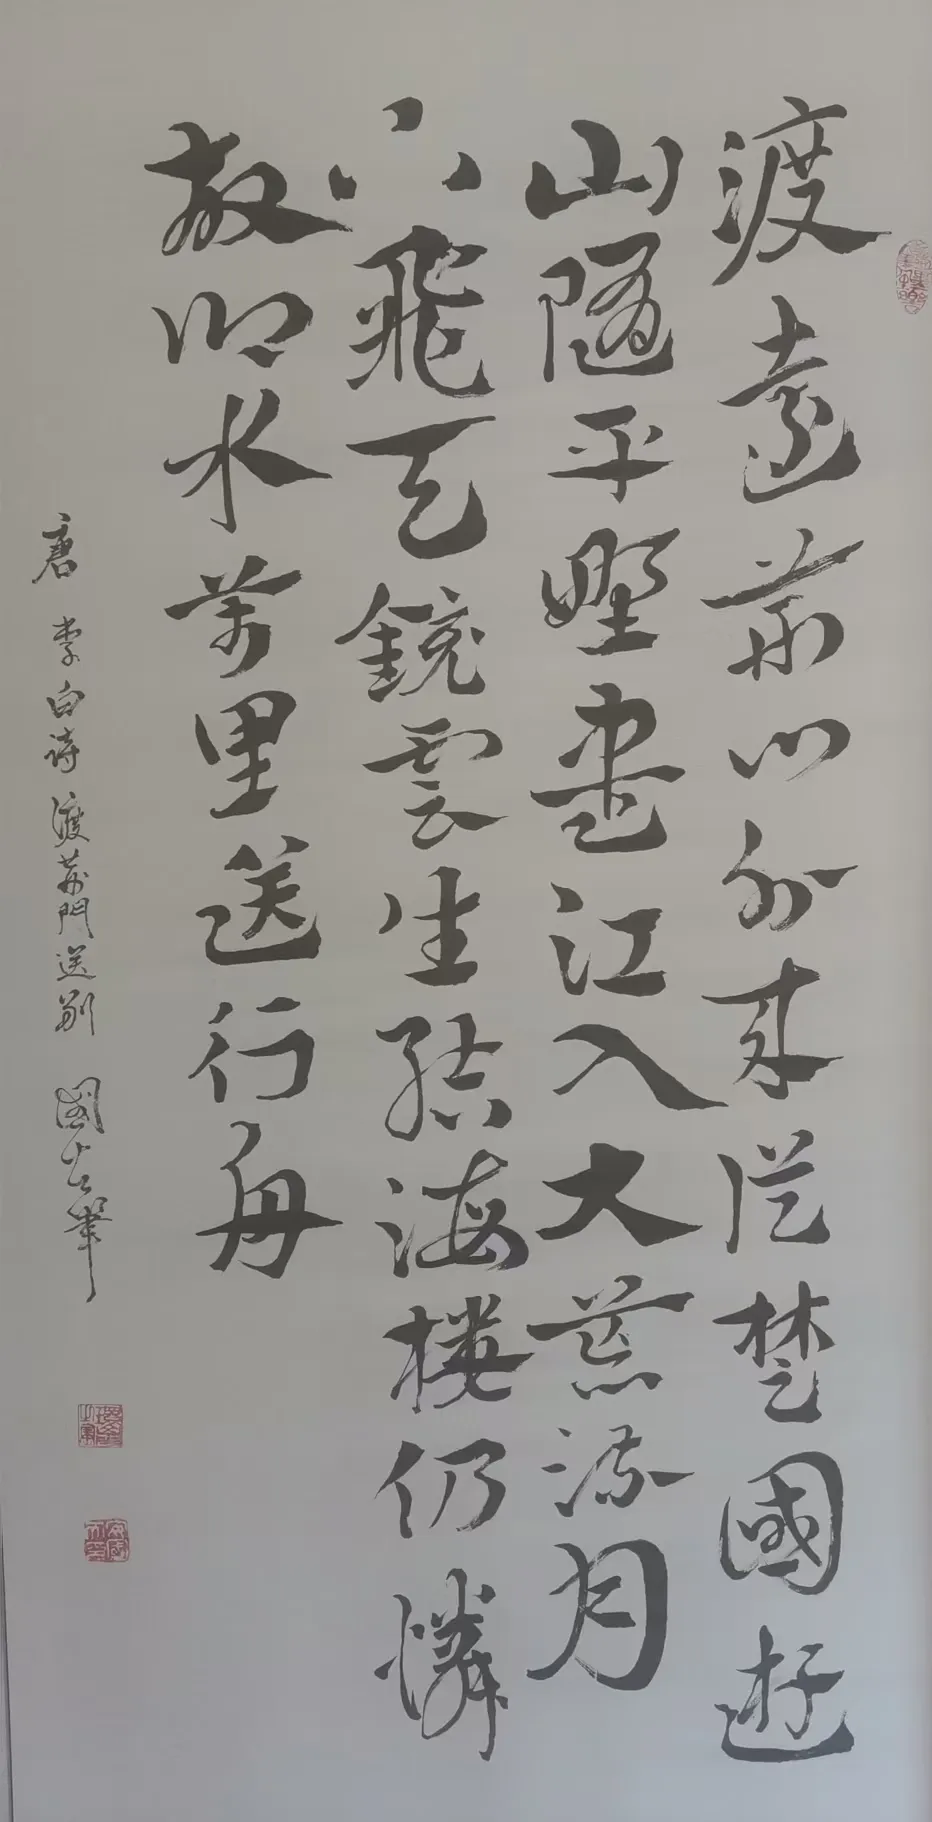 渡遠荊門外來從楚國遊
山隨平野盡江入大荒流月
下飛天鏡雲生結海楼仍憐
故鄉水萬里送行舟
唐 李白诗 渡荊門送别 國 筆